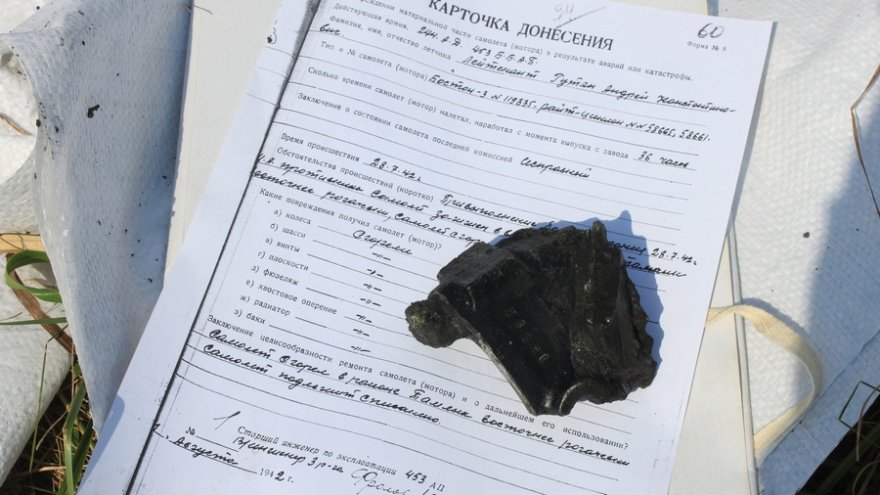 60
КАРТОЧКА ДОНЕСЕНИЯ
Форма № 8
повреждении материальной части самолета (мотора) в результате аварии или катастрофы.
Действующая армия, 244 А.Д 453 Б.Б.А.П
Фамилия, имя, отчество летчика Лейтенант Рутян Андрей Констонтино-
вич
Тип и № самолета (мотора) Бостон-3 N 119335. райт-циклон NN 58665, 58661.
Сколько времени самолет (мотор) налетал, наработал с момента выпуска с завода 36 часов
Заключение о состоянии самолета последней комиссией Исправный
Время происшествия 28.7.42г
Обстоятельства происшествий (коротко) При выполнении 28.7.42г
И.А противника самолет зажжен в
восточнее рогачыи, самолет сгорел
Какие повреждения получил самолет (мотор)?
а) колеса Сгорели
б) шасси -"-
в) винты -"-
г) плоскости -"-
д) фюзеляж -"-
е) хвостовое оперение -"-
ж) радиатор -"-
з) баки -"-
Заключение целисообразности ремонта самолета (мотора) и о дальнейшем его использовании?
Самолет сгорел в районе восточнее рогачыи
самолет подлежит списанию.
№ 1 Старший инженер по эксплоатации 453 АП
Августа 1942 г. Военинженер 3 р-га